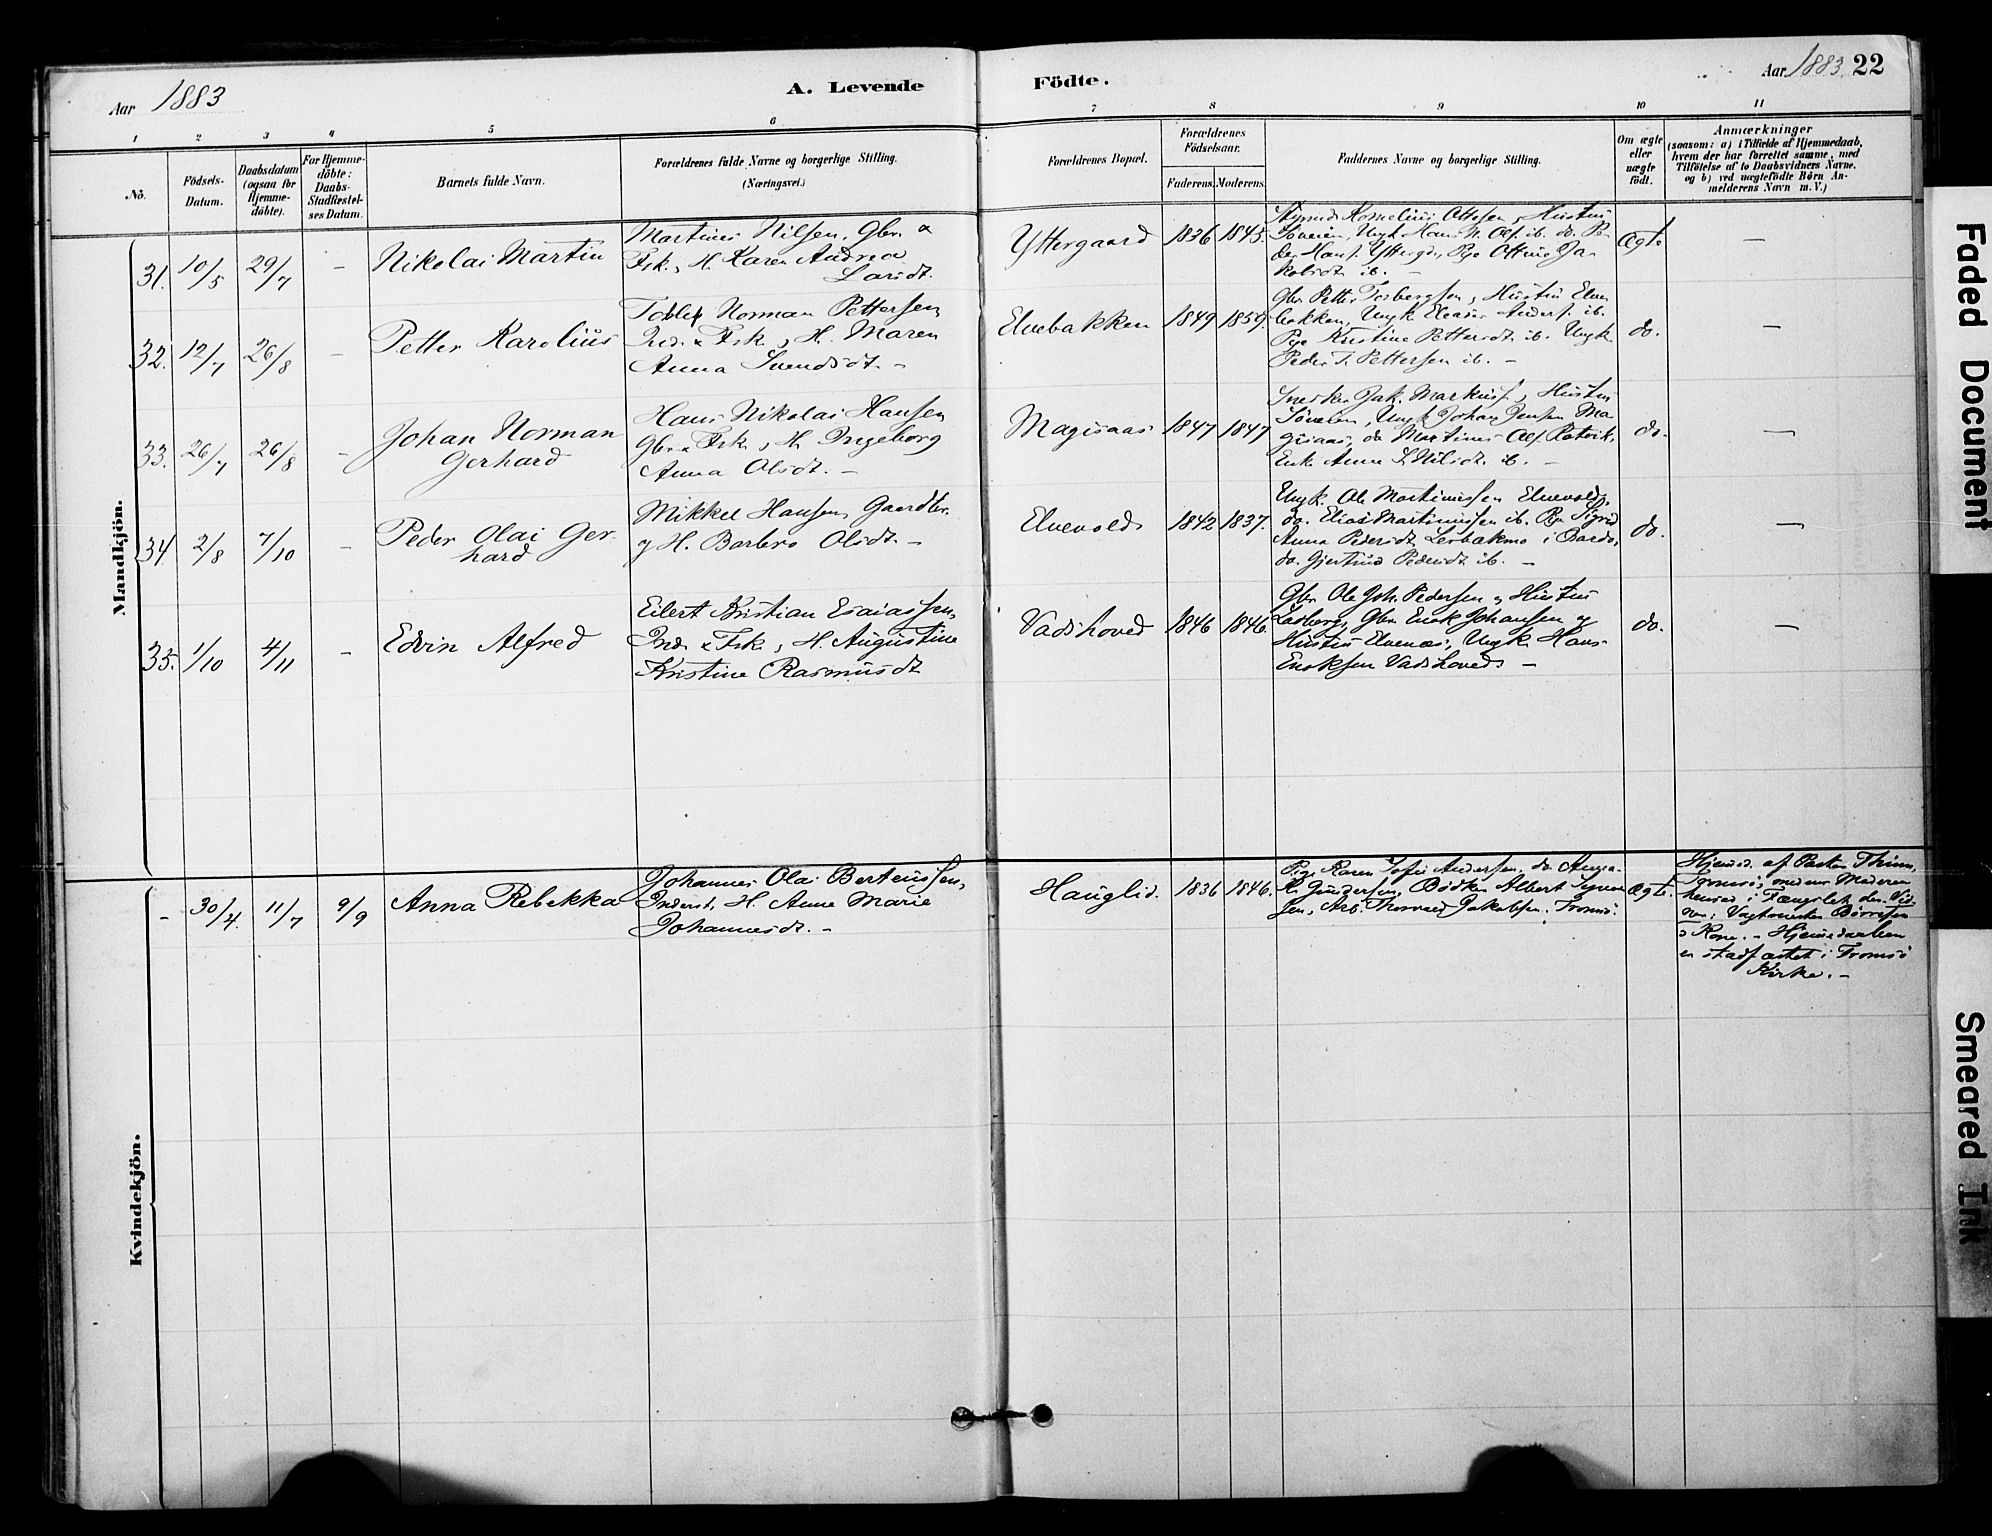 Aar 1883
A. Levende
1 2 3 4 5 6
No.
Födsels-
Datum.
Daabsdatum
(ogsaa for
Hjemme-
döbte).
For Hjemme-
döbte:
Daabs-
Stadfæstel-
ses Datum.
Barnets fulde Navn.
Forældrenes fulde Navne og borgerlige Stilling.
(Næringsvei.)
Mandkjön.
31. 10/5 29/7 –
Nikolai Martin
Martines Nilsen, Gbr. &
Fsk., H. Karen Andrea
Larsdt.
32. 12/7 26/8 –
Petter Karolius
Norman Pettersen,
Ind. & Fsk., H. Maren
Anna Svendsdt. –
33. 26/7 26/8 –
Johan Norman
Gerhard
Hans Nikolai Hansen
Gbr. & Fsk., H. Ingeborg
Anna Olsdt. –
34 2/8 7/10 –
Peder Olai Ger-
hard
Mikkel Hansen, Gaardbr.
og H. Barbero Olsdt. –
35. 1/10 4/11 –
Edvin Alfred
Eilert Kristian Esaiassen,
Ind. & Fsk., H. Augustine
Kristine Rasmusdt
Kvindekjön.
– 30/4. 11/7 9/9
Anna Rebekka
Johannes Olai Berteussen,
Inderst, H. Anne Marie
Johannesdt. –
Födte.
Aar 1883. 22
7 8 9 10 11
Forældrenes Bopæl.
Forældrenes
Födselsaar.
Faderens. Moderens.
Faddernes Navne og borgerlige Stilling.
Om ægte
eller
uægte
födt.
Anmærkninger
(saasom: a) i Tilfælde af Hjemmedaab,
hvem der har forrettet samme, med
Tilföielse af to Daabsvidners Navne.
og b) ved uægtefödte Börn An-
melderens Navn m. V.)
Yttergaard 1836 1845.
Kornelius Ottesen, Hustru
Ungk. Hans N. Ols. ib. do. Pe-
der Hans. Yttergd., Pige Ottine Ja-
kobsdt. ib. –
Ægte –
Elvebakken 1849 1859.
Gbr. Petter Torbergsen, Hustru Elve-
bakken, Ungk. Eleaser Anders. ib.
Pige Kristine Pettersdt. ib. Ungk.
Peder T. Pettersen ib. –
do. –
Magisaas 1847 1847
Snedker Jak. Markus., Hustru
Ungk. Johan Jensen Ma-
gisaas, do Martines Ols.
Enke Anna Nilsdt. ib. –
do. –
Elvevold 1842 1837.
Ungk. Ole Martinussen Elvevold,
do. Elias Martinussen ib. Pige Sigrid
Anna Pedersdt. i Bardo,
do. Gjertrud Pedersdt. ib. –
do. –
Vadshoved 1846 1846.
Gbr. Ole Joh. Pedersen og Hustru
Gbr. Enok Johansen og
Hustru Elvenæs, Ungk. Hans
Enoksen Vadshoved. –
do. –
Hauglid. 1836 1846.
Pige Karen Sofie Andersen, do Anna
K. Gundersen, Bödker Albert
sen, Arb. Thorvald Jakobsen. Tromsö.
Ægte.
Hjemmd. af Pastor
Tromsö, medens Moderen
hensad i Fængslet der. Vid-
ner: Vagtmester Börresen
& Kone. – Hjemmedaaben
er stadfæstet i Tromsö
Kirke. –
Faded Document
Smeared Ink